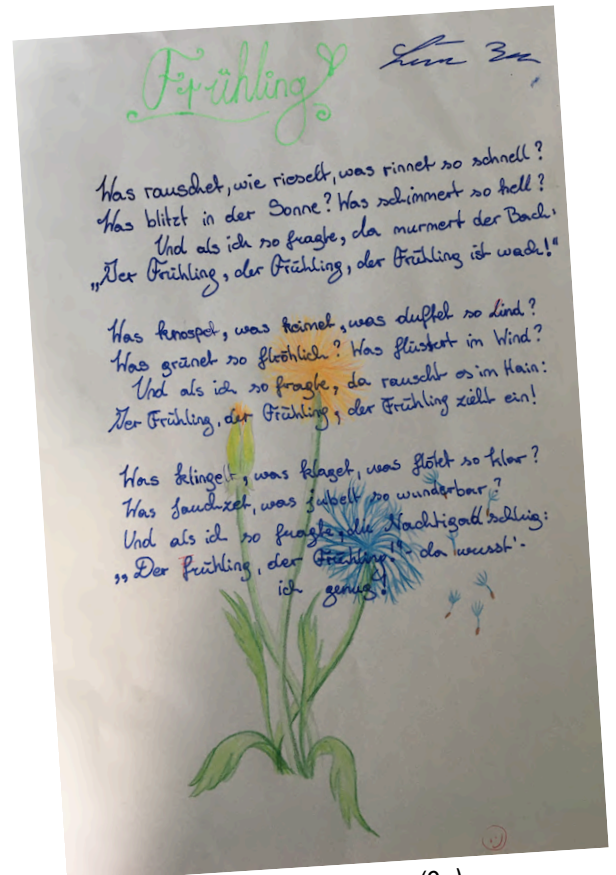 Frühling
Was rauschet, wie rieselt, was rinnet so schnell?
Was blitzt in der Sonne? Was schimmert so hell?
Und als ich so fragte, da murmert der Bach:
„Der Frühling, der Frühling, der Frühling ist wach!“
Was knospet, was keimet, was duftet so lind?
Was grünet so fröhlich? Was flüstert im Wind?
Und als ich so fragte, da rauscht es im Hain:
Der Frühling, der Frühling, der Frühling zieht ein!
Was klingelt, was klaget, was flötet so klar?
Was jauchzet, was jubelt so wunderbar?
Und als ich so fragte, die Nachtigall schlug:
„Der Frühling, der Frühling!“- da wusst'-
ich genug!